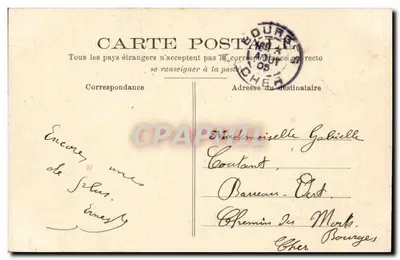 CARTE POSTALE
Tous les pays étrangers n'acceptent pas la correspondance au recto
se renseigner à la poste
BOURGES
CHER
Correspondance
Adresse du destinataire
Encore une
de plus.
Ernest
Mademoiselle Gabrielle
Coutant
Barreau Vert
Chemin des Morts
Bourges
Cher
CPARAMA